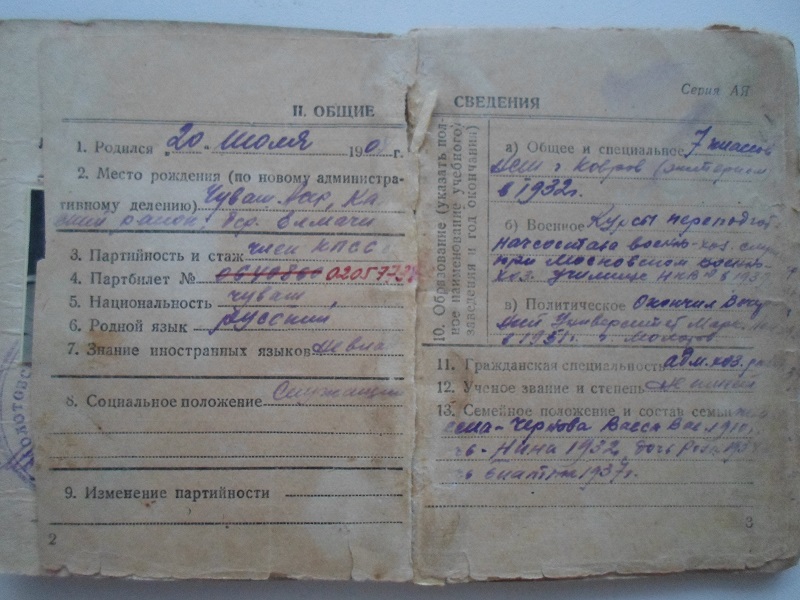 II. ОБЩИЕ
1. Родился „20" июля 190 г.
2. Место рождения (по новому администра-
тивному делению) Чуваш. Аср, Ка
район,
3. Партийность и стаж член КПСС
4. Партбилет № 02057
5. Национальность чуваш
6. Родной язык русский
7. Знание иностранных языков не вла
8. Социальное положение Служащий
9. Изменение партийности
2
олотовс
СВЕДЕНИЯ
Серия АЯ
10. Образование (указать пол-
ное наименование учебного
заведения и год окончания)
а) Общее и специальное 7 классов
г. Ковров
в 1932г.
б) Военное Курсы переподгот
начсостава военно-хоз. слу
при Московском военно-
хоз. училище НКВД в 193
в) Политическое Окончил Вече
ний Университет Марк.
в 1951г. г. Молотов
11. Гражданская специальность адм. хоз. ра
12. Ученое звание и степень не имеет
13. Семейное положение и состав семьи
Чернова Васса 1910
Нина 1932, дочь Роза 193
1937г.
3